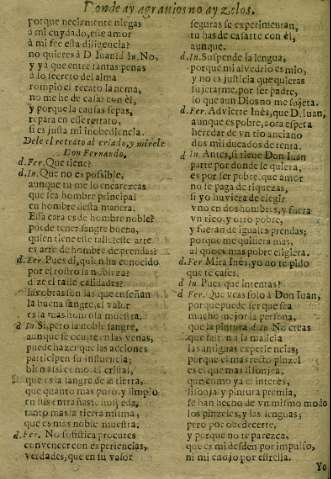 Donde ay agrauios no ay zelos.
porque neciamente niegas
a mi cuydado, esse amor
à mi fee esta diligencia?
no quieres à D. Juan? d. In. No,
y ya que entre tantas penas
à lo secreto del alma
rompio el recato la nema,
no me he de casar con èl,
y porque la causa sepas,
repara en esse retrato,
si es justa mi inobediencia.
Dale el retrato al criado, y mirele
Don Fernando.
d. Fer. Que tiene?
d. In. Que no es possible,
aunque tu me lo encarezcas
que sea hombre principal
en hombre desta manera.
Esta cara es de hombre noble?
puede tener sangre bueno,
quien tiene este talle, este arte
es arte de hombre de prendas?
d. Fer. Pues di, quien ha conocido
por el rostro la nobleza?
dize el talle calidades?
las obras son las que enseñan
la buena sangre, el valor
es la mas honrosa muestra.
d. In. Si, pero la noble sangre,
aunque se oculte en las venas,
puede hazer que las acciones
participen su influencia;
el cristal,
que es la sangre de la tierra,
que quanto mas puro, y limpio
tanto mas la tierra misma,
que es mas noble muestra.
d. Fer. No sofistica procures
convencer con experiencias,
verdades, que en su valor
seguras se experimentan,
tu has de casarte con èl,
aunque.
d. In. Suspende la lengua,
porque mi alvedrio es mio,
y no es justicia que quieras
sujetarme, por ser padre,
lo que aun Dios no me sujeta.
d. Fer. Advierte Inès, que D. Juan,
aunque es pobre, aora espera
heredar de vn tio anciano
dos mil ducados de renta.
d. In. Antes, si tiene Don Juan
parte por donde le quiera,
es por ser pobre, que amor
no se paga de riquezas,
si yo huviera de elegir
vno en dos hombres, y fuera
vn rico, y otro pobre,
y fueran de iguales prendas,
porque me quisiera mas,
al que es mas pobre eligiera.
d. Fer. Mira Inès, yo no te pido
que te cases.
d. In. Pues que intentas?
d. Fer. Que veas solo à Don Juan,
porque puede ser que sea
mucho mejor la persona,
que la pintura. d. In. No creas
las antiguas experiencias;
porque es mas recto pinzel
es el que mas lisonjea,
que como ya el interès,
lisonja, y pintura premia,
se han hecho de vn mismo modo
los pinzeles, y las lenguas;
pero por obedecerte,
y porque no te parezca,
que es mi desden por impulso,
ni mi enojo por estrella.
Yo